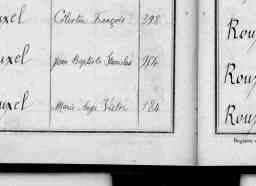 uxel Célestin François 398
uxel Jean Baptiste Stanislas 984
uxel Marie Ange Victor 184
Rou
Roux
Roux
Registre